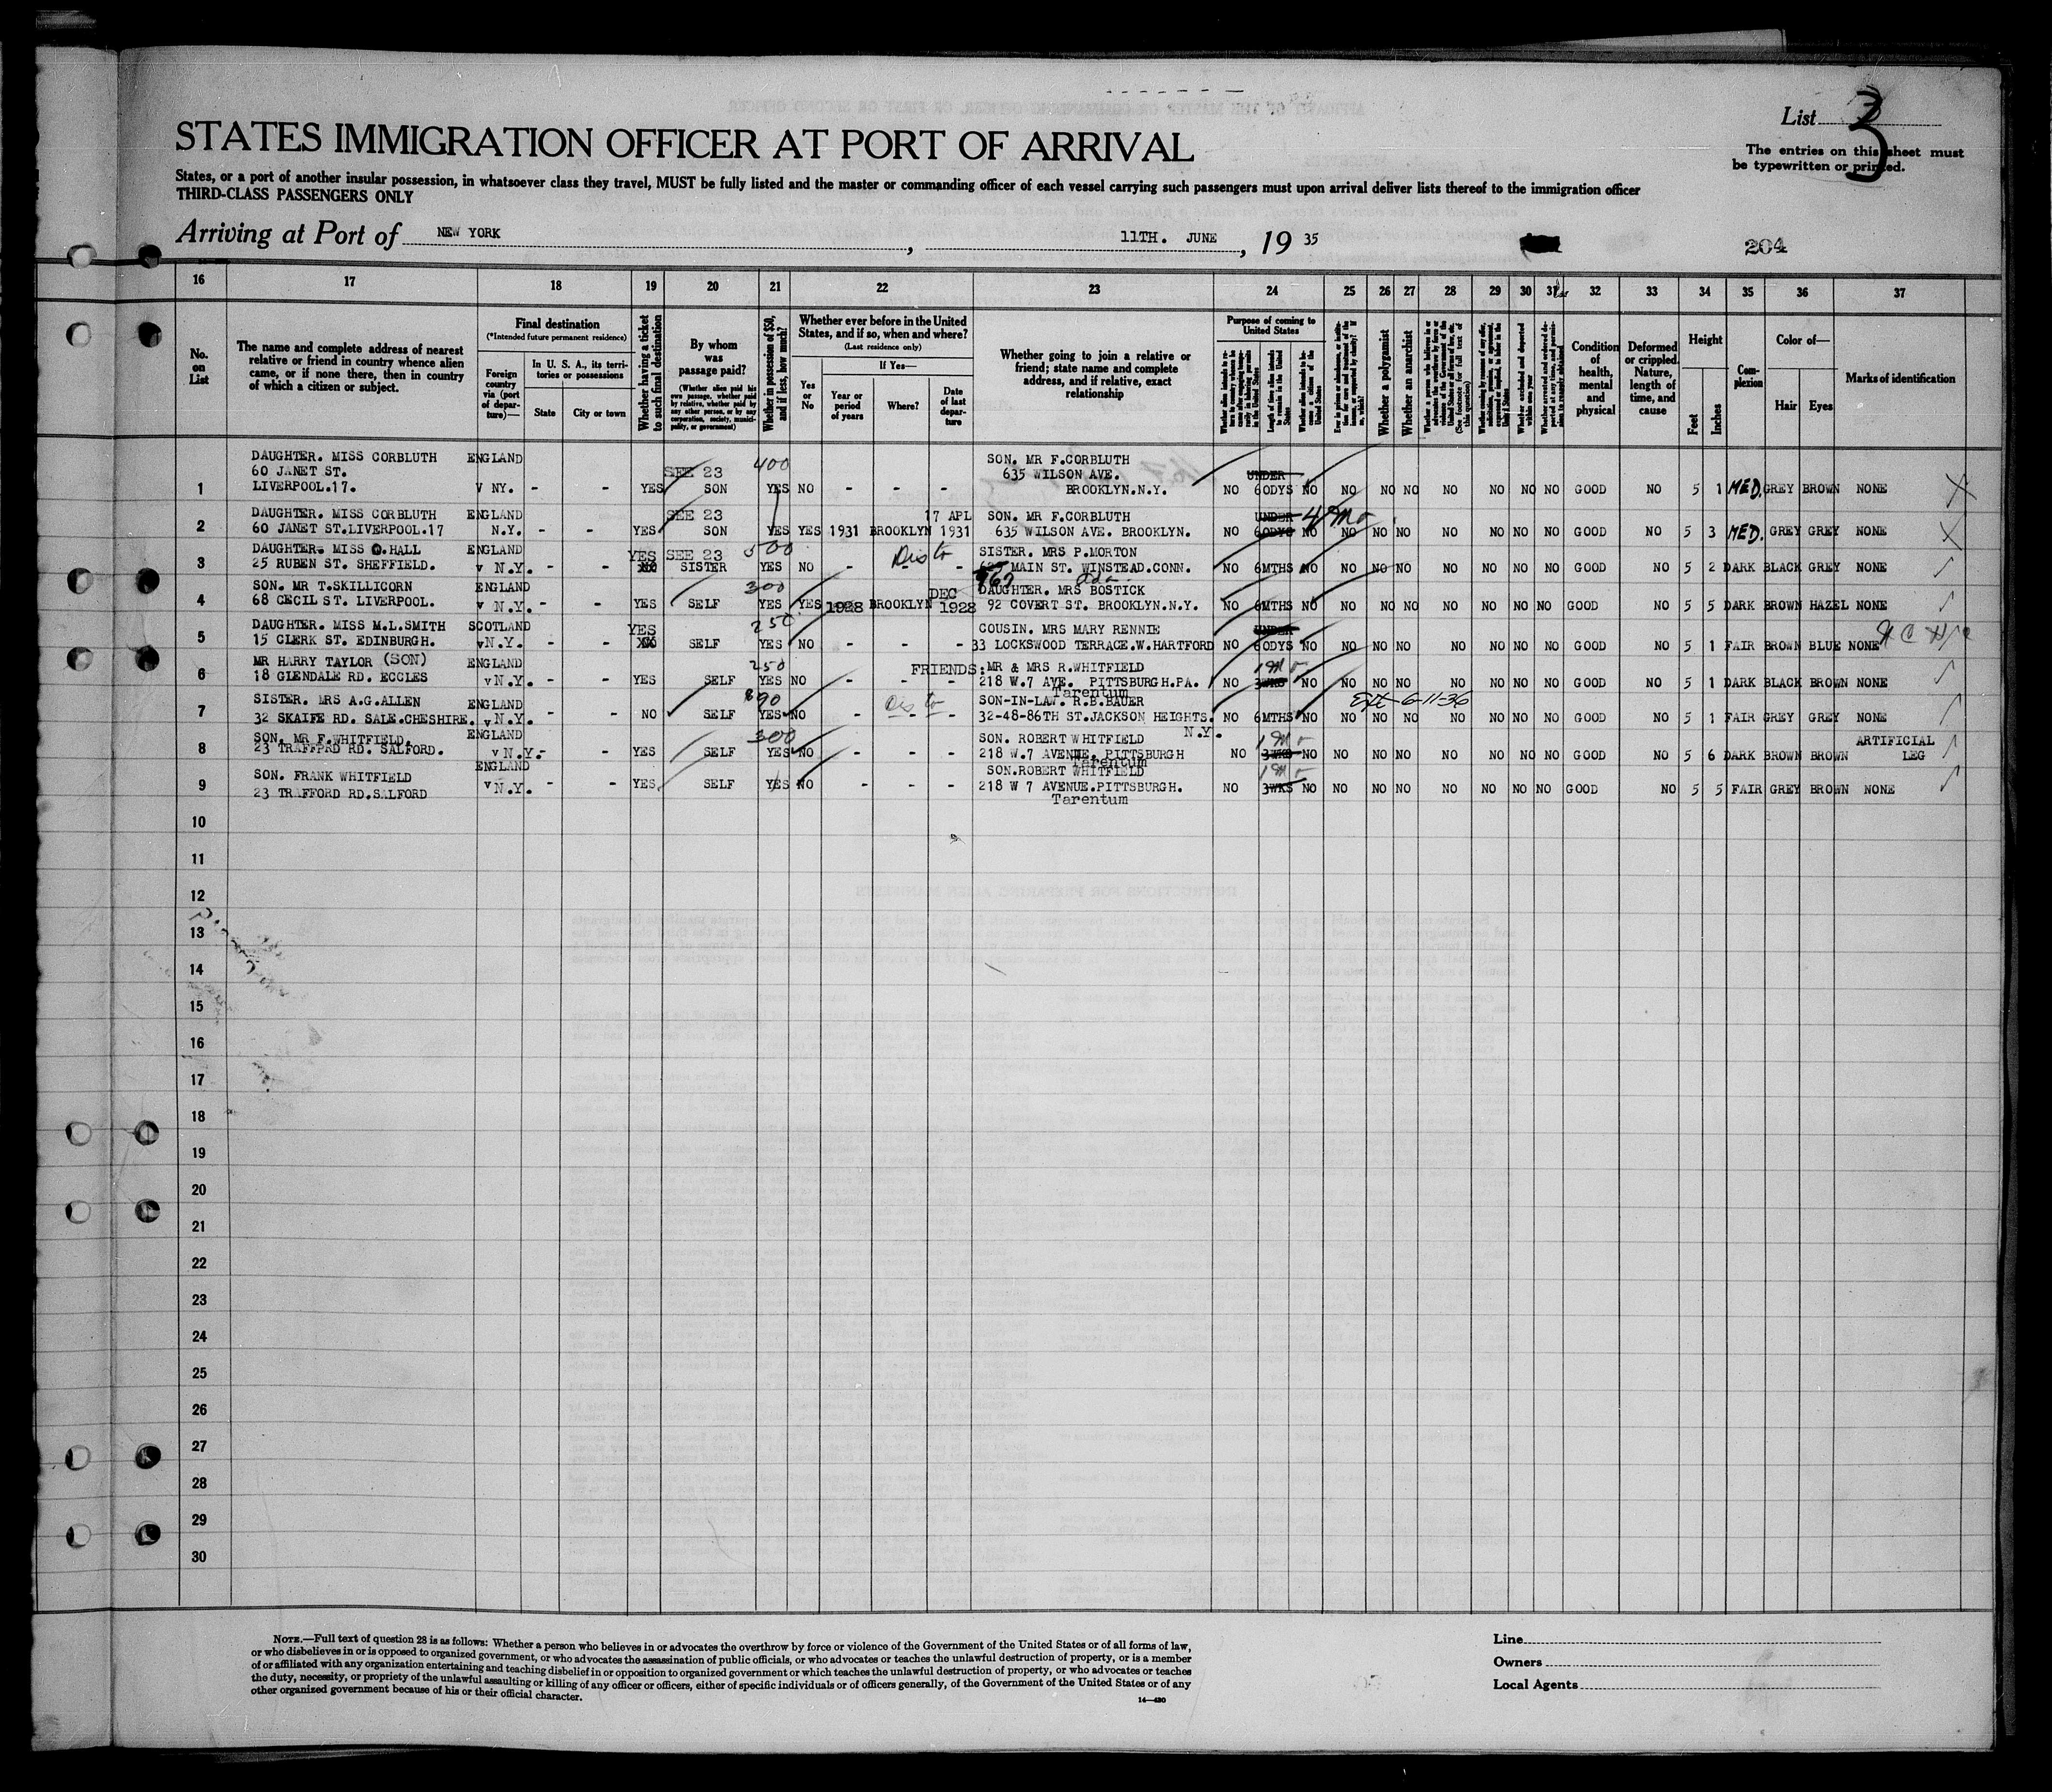 List 3
STATES IMMIGRATION OFFICER AT PORT OF ARRIVAL
The entries on this sheet must
be typewritten or printed.
States, or a port of another insular possession, in whatsoever class they travel, MUST be fully listed and the master or commanding officer of each vessel carrying such passengers must upon arrival deliver lists thereof to the immigration officer
THIRD-CLASS PASSENGERS ONLY
Arriving at Port of NEW YORK, 11TH. JUNE, 19 35
204
16 17 18 19 20 21 22 23 24 25 26 27 28 29 30 31 32 33 34 35 36 37
No. on List
The name and complete address of nearest relative or friend in country whence alien came, or if none there, then in country of which a citizen or subject.
Final destination
(*Intended future permanent residence)
Foreign country via (port of departure)—
In U. S. A., its territories or possessions
State
City or town
Whether having a ticket to such final destination
By whom was passage paid?
(Whether alien paid his own passage, whether paid by relative, whether paid by any other person, or by any corporation, society, municipality, or government)
Whether in possession of $50, and if less, how much?
Whether ever before in the United States, and if so, when and where?
(Last residence only)
Yes or No
If Yes—
Year or period of years
Where?
Date of last departure
Whether going to join a relative or friend; state name and complete address, and if relative, exact relationship
Purpose of coming to United States
Length of time alien intends to remain in the United States
Whether alien intends to become a citizen of the United States
Whether a polygamist
Whether an anarchist
(See footnote for full text of this question)
Condition of health, mental and physical
Deformed or crippled. Nature, length of time, and cause
Height
Feet
Inches
Complexion
Color of—
Hair
Eyes
Marks of identification
400
DAUGHTER. MISS CORBLUTH ENGLAND SON. MR F.CORBLUTH
60 JANET ST. SEE 23 635 WILSON AVE. UNDER
1 LIVERPOOL.17. V NY. - - YES SON YES NO - - - BROOKLYN.N.Y. NO 60DYS NO NO NO NO NO NO NO NO GOOD NO 5 1 MED. GREY BROWN NONE
DAUGHTER. MISS CORBLUTH ENGLAND SEE 23 17 APL SON. MR F.CORBLUTH UNDER 4 Mo
2 60 JANET ST.LIVERPOOL.17 N.Y. - - YES SON YES YES 1931 BROOKLYN 1931 635 WILSON AVE. BROOKLYN. NO 60DYS NO NO NO NO NO NO NO NO GOOD NO 5 3 MED. GREY GREY NONE
DAUGHTER- MISS O.HALL ENGLAND YES SEE 23 500 SISTER. MRS P.MORTON
3 25 RUBEN ST. SHEFFIELD. v N.Y. - - NO SISTER YES NO - - MAIN ST. WINSTEAD.CONN. NO 6MTHS NO NO NO NO NO NO NO NO GOOD NO 5 2 DARK BLACK GREY NONE
SON. MR T.SKILLICORN ENGLAND 300 DEC DAUGHTER. MRS BOSTICK
4 68 CECIL ST. LIVERPOOL. v N.Y. - - YES SELF YES YES 1928 BROOKLYN 1928 92 COVERT ST. BROOKLYN.N.Y. NO 6MTHS NO NO NO NO NO NO NO NO GOOD NO 5 5 DARK BROWN HAZEL NONE
DAUGHTER. MISS M.L.SMITH SCOTLAND YES 250 COUSIN. MRS MARY RENNIE UNDER
5 15 CLERK ST. EDINBURGH. v N.Y. - - NO SELF YES NO - - - 33 LOCKSWOOD TERRACE.W.HARTFORD NO 60DYS NO NO NO NO NO NO NO NO GOOD NO 5 1 FAIR BROWN BLUE NONE
MR HARRY TAYLOR (SON) ENGLAND 250 FRIENDS: MR & MRS R.WHITFIELD 1 Mo
6 18 GLENDALE RD. ECCLES v N.Y. - - YES SELF YES NO - - - 218 W.7 AVE. PITTSBURGH.PA. NO 3WKS NO NO NO NO NO NO NO NO GOOD NO 5 1 DARK BLACK BROWN NONE
Tarentum
SISTER. MRS A.G.ALLEN ENGLAND $90 SON-IN-LAW. R.B.BAUER Ext 6-11-36
7 32 SKAIFE RD. SALE.CHESHIRE. v N.Y. - - NO SELF YES NO - - - 32-48-86TH ST.JACKSON HEIGHTS. NO 6MTHS NO NO NO NO NO NO NO NO GOOD NO 5 1 FAIR GREY GREY NONE
N.Y.
SON. MR F.WHITFIELD. ENGLAND 300 SON. ROBERT WHITFIELD 1 Mo ARTIFICIAL
8 23 TRAFFPRD RD. SALFORD. v N.Y.- - YES SELF YES NO - - - 218 W.7 AVENUE, PITTSBURGH NO 3WKS NO NO NO NO NO NO NO NO GOOD NO 5 6 DARK BROWN BROWN LEG
Tarentum
SON. FRANK WHITFIELD ENGLAND SON.ROBERT WHITFIELD 1 Mo
9 23 TRAFFORD RD.SALFORD v N.Y. - - YES. SELF YES NO - - - 218 W 7 AVENUE.PITTSBURGH. NO 3WKS NO NO NO NO NO NO NO NO GOOD NO 5 5 FAIR GREY BROWN NONE
Tarentum
10
11
12
13
14
15
16
17
18
19
20
21
22
23
24
25
26
27
28
29
30
NOTE.—Full text of question 28 is as follows: Whether a person who believes in or advocates the overthrow by force or violence of the Government of the United States or of all forms of law,
or who disbelieves in or is opposed to organized government, or who advocates the assassination of public officials, or who advocates or teaches the unlawful destruction of property, or is a member
of or affiliated with any organization entertaining and teaching disbelief in or opposition to organized government or which teaches the unlawful destruction of property, or who advocates or teaches
the duty, necessity, or propriety of the unlawful assaulting or killing of any officer or officers, either of specific individuals or of officers generally, of the Government of the United States or of any
other organized government because of his or their official character.
14—430
Line
Owners
Local Agents